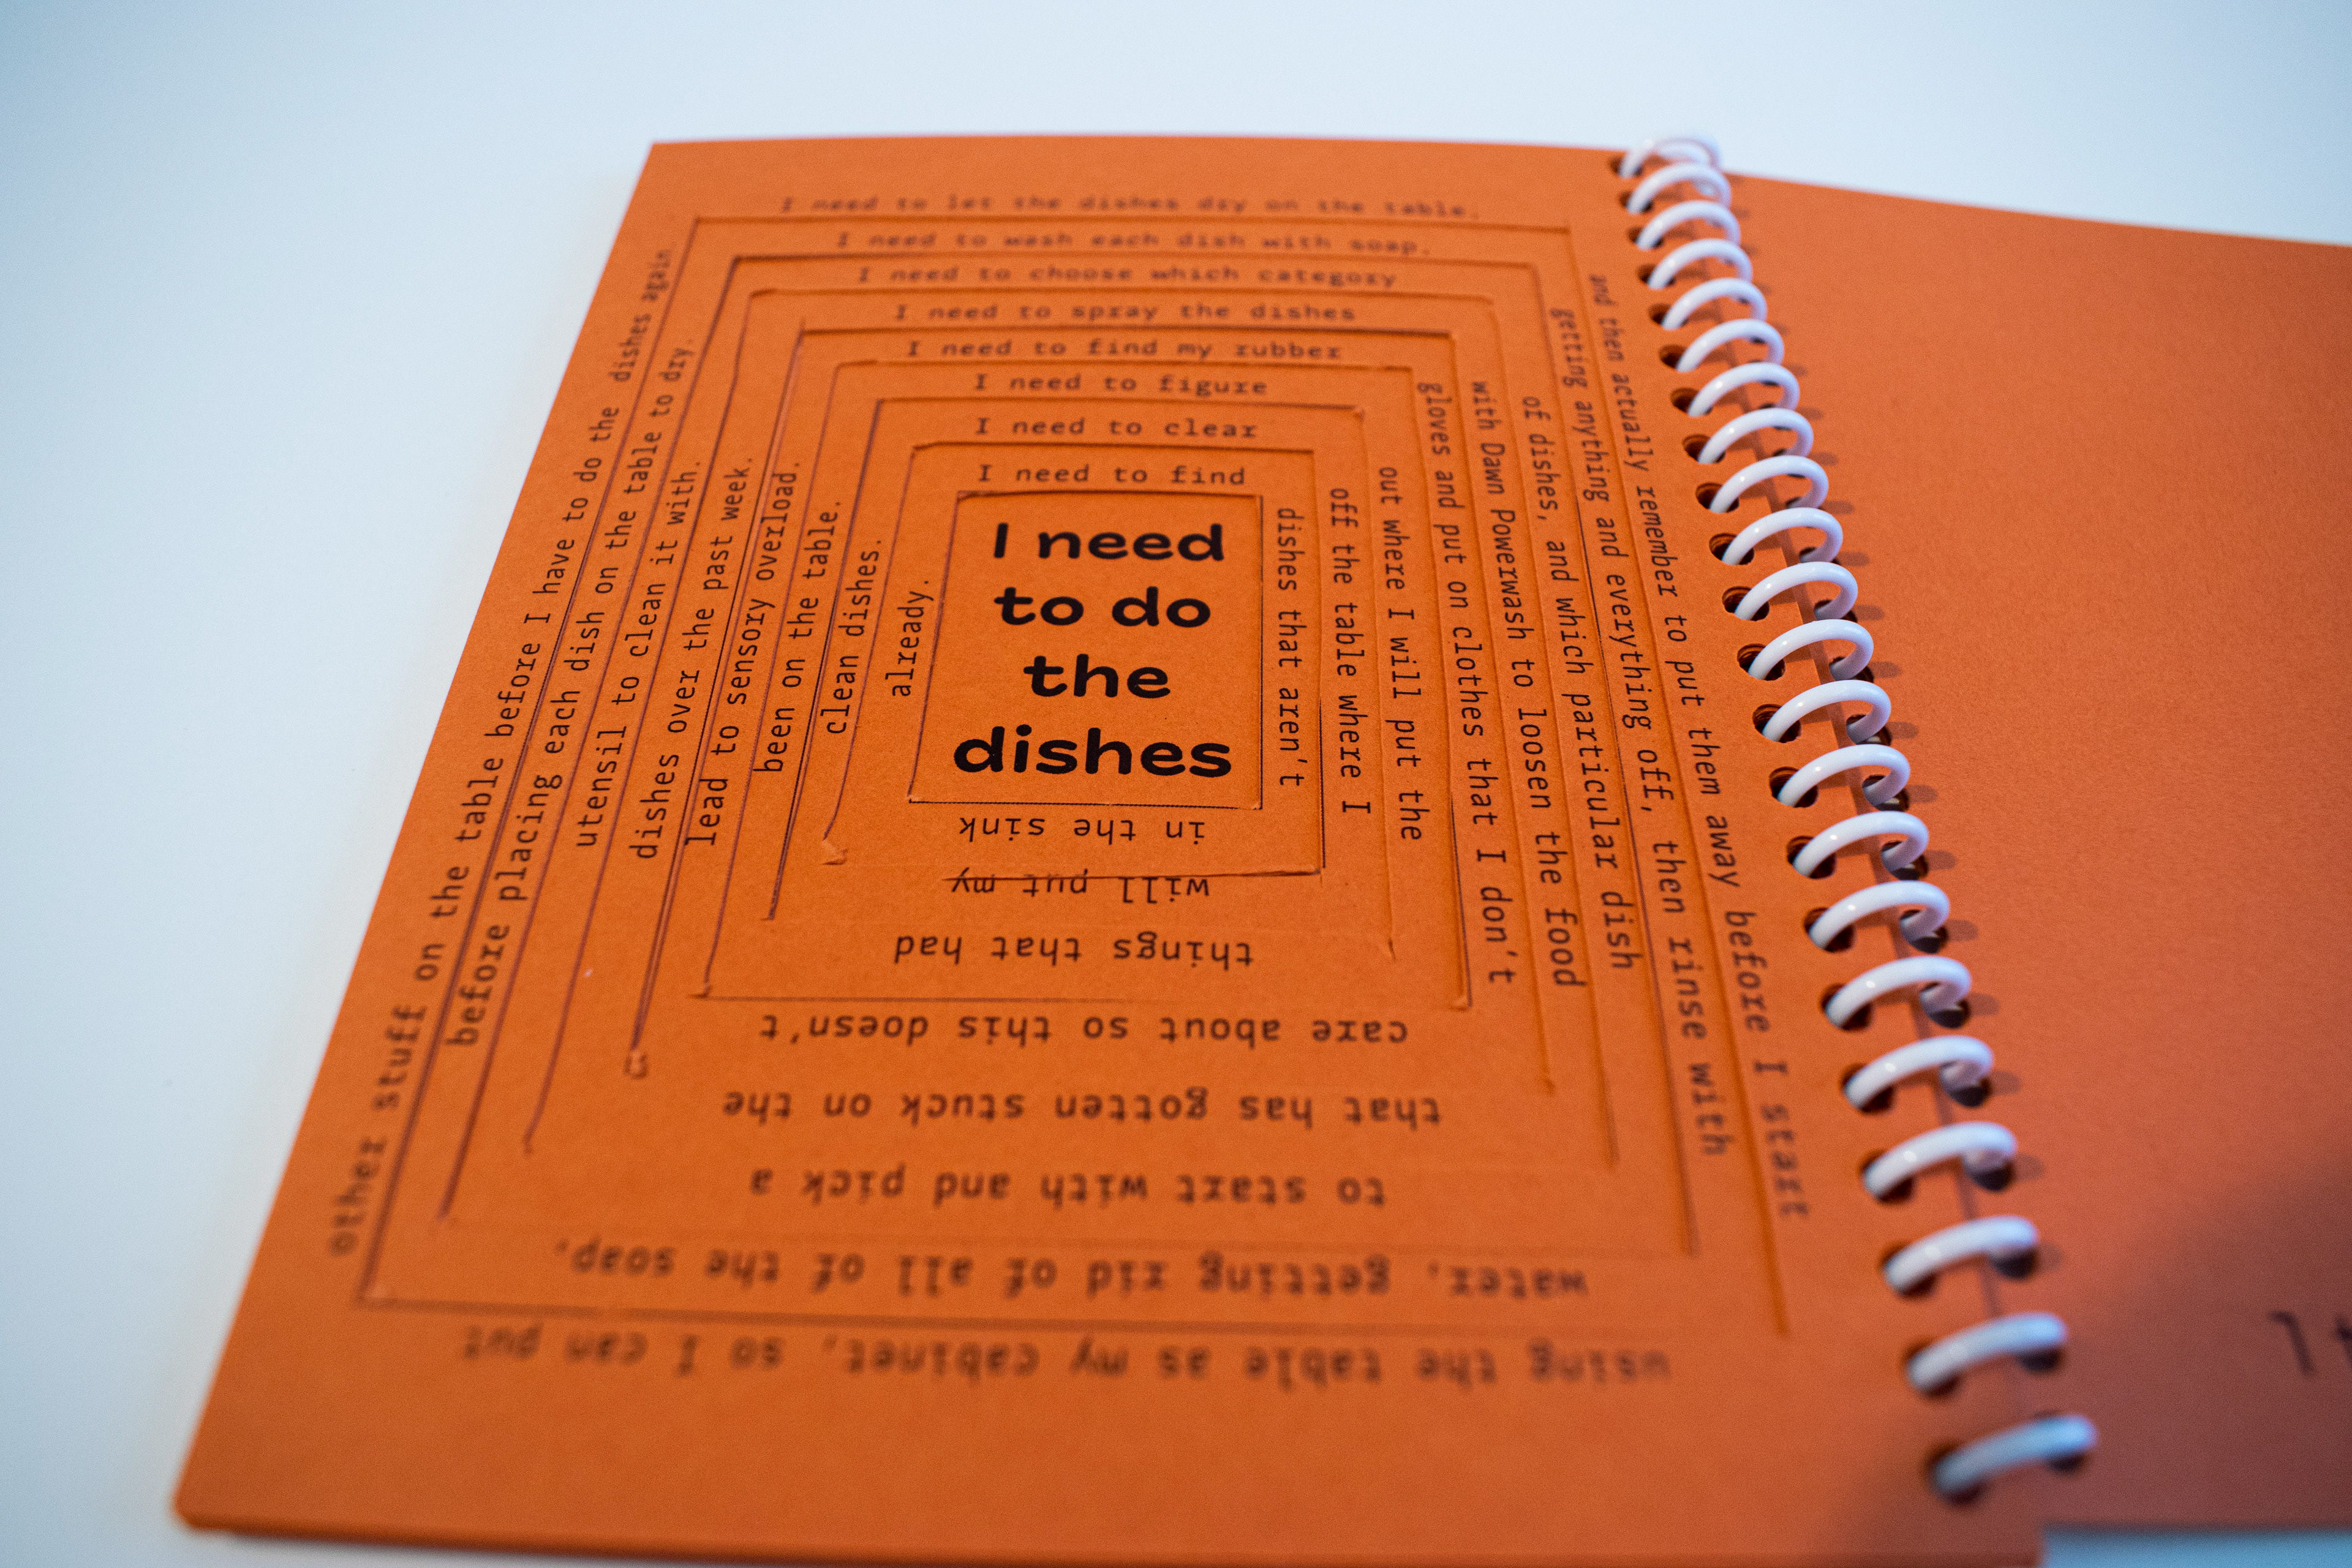 I need
to do
the
dishes
I need to find
dishes that aren't
in the sink
already.
I need to clear
off the table where I
will put my
clean dishes.
I need to figure
out where I will put the
things that had
been on the table.
I need to find my rubber
gloves and put on clothes that I don't
care about so this doesn't
lead to sensory overload.
I need to spray the dishes
with Dawn Powerwash to loosen the food
that has gotten stuck on the
dishes over the past week.
I need to choose which category
of dishes, and which particular dish
to start with and pick a
utensil to clean it with.
I need to wash each dish with soap,
getting anything and everything off, then rinse with
water, getting rid of all of the soap,
before placing each dish on the table to dry.
I need to let the dishes dry on the table,
and then actually remember to put them away before I start
using the table as my cabinet, so I can put
other stuff on the table before I have to do the dishes again